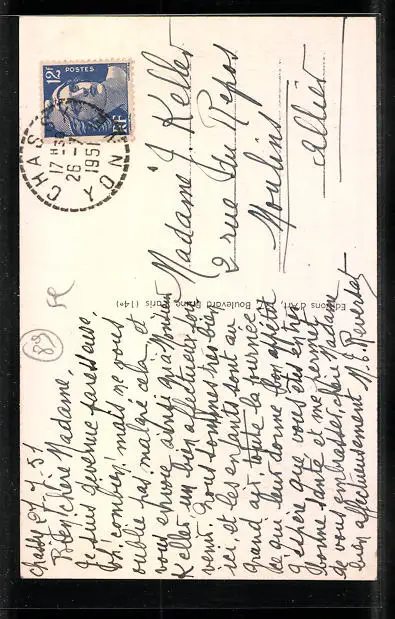 12F
POSTES
RF
CHASSY
YONNE
17 H
26 - 7
1951
89
Chassy 27 7 51
Bien chère Madame,
Je suis devenue paresseuse,
oh! combien! mais ne vous
oublie pas malgré cela et
vous envoie ainsi qu'à Monsieur
Keller un bien affectueux sou
venir. Nous sommes très bien
ici, et les enfants sont au
grand air toute la journée
ce qui leur donne bon appétit
J'espère que vous êtes en très
bonne santé et me permet
de vous embrasser, chère Madame
bien affectueusement
Madame J. Keller
2 rue du Repos
Moulins
Allier
Editions d'Art, Boulevard Brune, Paris (14e)